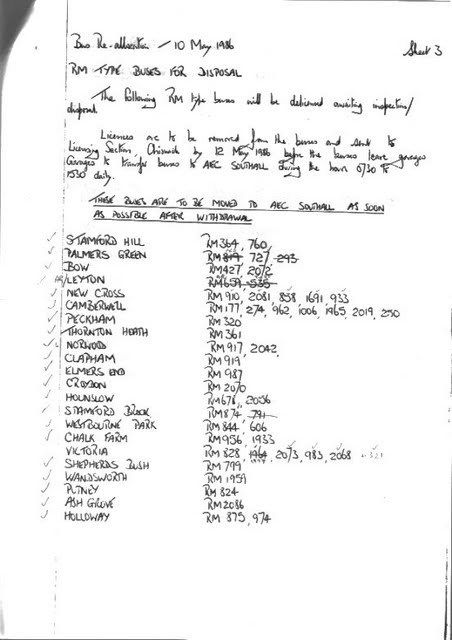 Bus Re-allocation / 10 May 1986 Sheet 3
RM TYPE BUSES FOR DISPOSAL
The following RM type buses will be delicensed awaiting inspection/
disposal.
Licences are to be removed from the buses and sent to
Licensing Section, Chiswick by 12 May 1986 before the buses leave garages
Garages to transfer buses to AEC SOUTHALL during the hours 0730 to
1530 daily.
THESE BUSES ARE TO BE MOVED TO AEC SOUTHALL AS SOON
AS POSSIBLE AFTER WITHDRAWAL
STAMFORD HILL RM 364, 760
PALMERS GREEN RM 819 727 293
BOW RM 427, 2072
LEYTON RM 659 535
NEW CROSS RM 910, 2081, 858, 1691, 933
CAMBERWELL RM 177, 274, 962, 1006, 1965, 2019, 250
PECKHAM RM 320
THORNTON HEATH RM 361
NORWOOD RM 917, 2042,
CLAPHAM RM 919
ELMERS END RM 987
CROYDON RM 2070
HOUNSLOW RM 678, 2056
STAMFORD BROOK RM 874 791
WESTBOURNE PARK RM 844, 606
CHALK FARM RM 956, 1933
VICTORIA RM 828, 1964, 2073, 983, 2068 521
SHEPHERDS BUSH RM 799
WANDSWORTH RM 1959
PUTNEY RM 824
ASH GROVE RM 2086
HOLLOWAY RM 875, 974